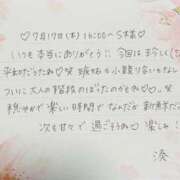 ♡7月17日(木)16:00〜S様♡
いつも本当にありがとう♡今回は珍しく(?)
平和だったね♡笑 嫉妬も小競り合いもなし
ついに大人の階段のぼったのかもね♡笑
穏やかで楽しい時間でなんだか新鮮だ
次も甘々で過ごそうね♡楽しみ♡
湊